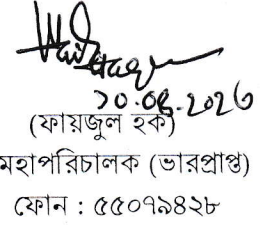 ১০.০৪.২০২৩
(ফায়জুল হক)
মহাপরিচালক (ভারপ্রাপ্ত)
ফোন : ৫৫০৭৯৪২৮